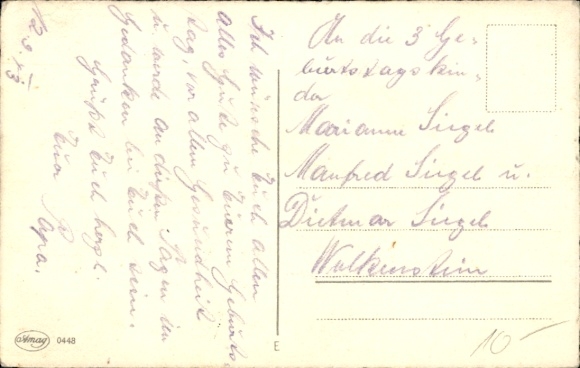 12.3.43
Ich wünsche Euch allen
alles Gute zu Eurem Geburts
tag, vor allem Gesundheit
u. werde an diesen Tagen in
Gedanken bei Euch sein.
Grüßt Euch herzl.
Euer Papa.
An die 3 Ge-
burtstagskin-
der
Marianne Siegel
Manfred Siegel u.
Dietmar Siegel
Wolkenstein
10-
Amag 0448
E